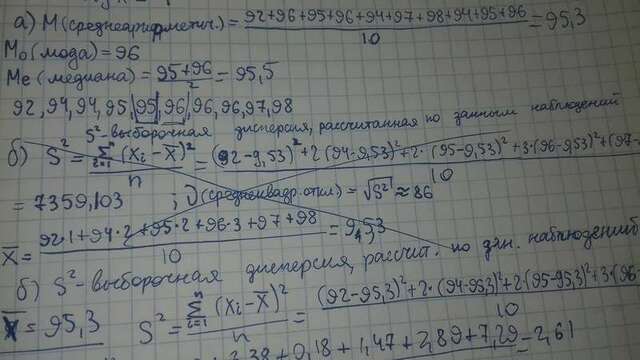 а) М (среднеарифметич.) = (92+96+95+96+94+97+98+94+95+96)/10 = 95,3
Мо (мода) = 96
Ме (медиана) = (95+96)/2 = 95,5
92, 94, 94, 95, |95, 96,| 96, 96, 97, 98
S² - выборочная дисперсия, рассчитанная по данным наблюдений
б) S² = Σ(i=1, n) (Xi - X̄)² / n = ((92-9,53)² + 2(94-9,53)² + 2·(95-9,53)² + 3·(96-9,53)² + (97-
10
= 7359,103 ; (среднеквадр. откл) = √S² ≈ 86
X̄ = (92·1+94·2+95·2+96·3+97+98)/10 = 9,53
б) S² - выборочная дисперсия, рассчит. по дан. наблюдений
X̄ = 95,3 S² = Σ(i=1, n) (Xi - X̄)² / n = ((92-95,3)² + 2·(94-95,3)² + 2·(95-95,3)² + 3·(96
10
+ 0,18 + 1,47 + 2,89 + 7,29 = 2,61